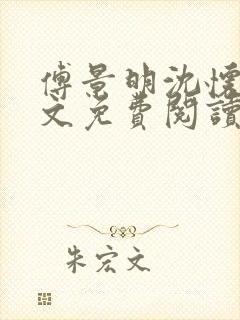 傅景明沈懷
文免費閱讀
朱宏文